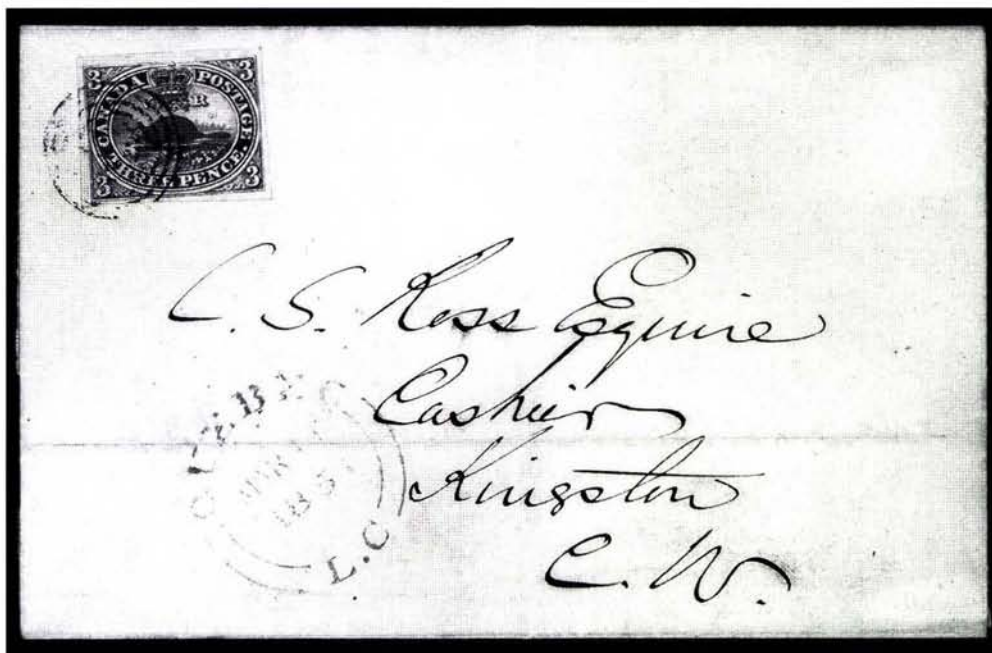 3 3
CANADA POSTAGE
THREE PENCE.
3 3
C. S. Ross Esquire
Cashier
Kingston
C. W.
QUEBEC
L.C